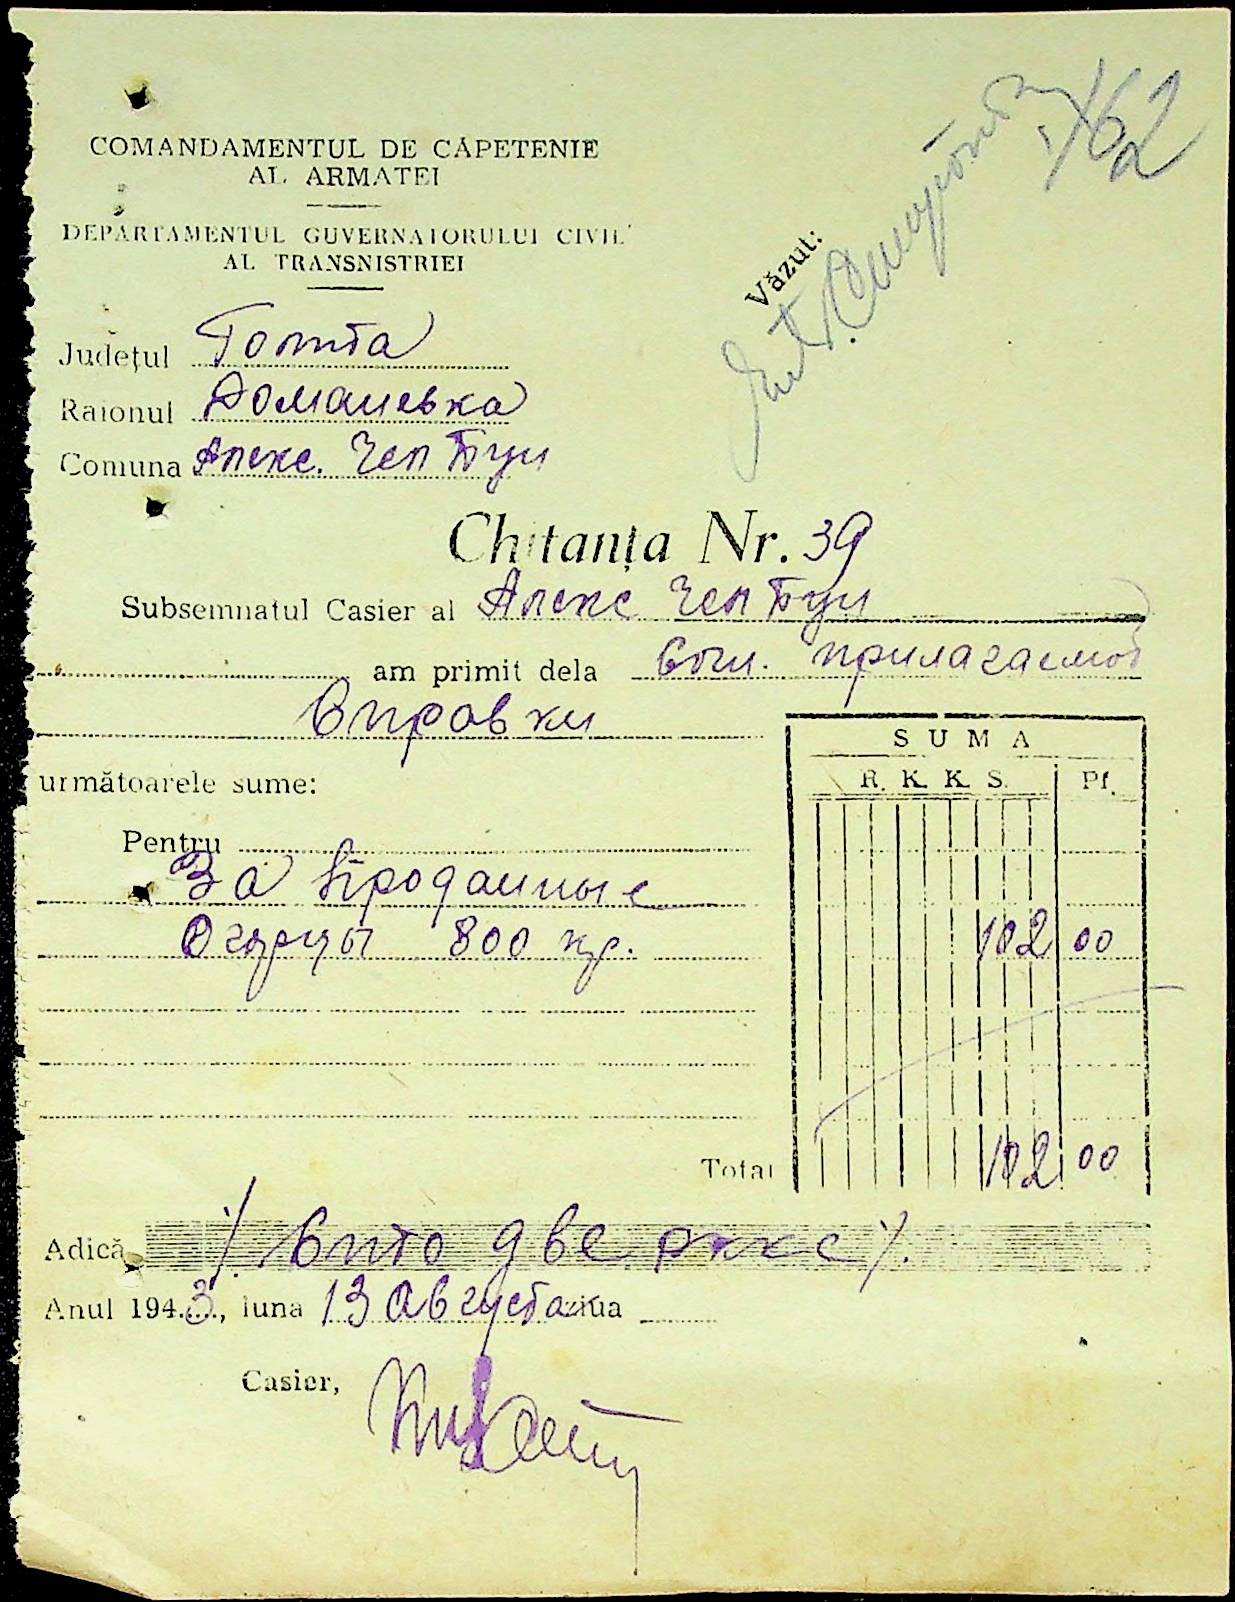 COMANDAMENTUL DE CĂPETENIE
AL ARMATEI
DEPARTAMENTUL GUVERNATORULUI CIVIL
AL TRANSNISTRIEI
162
Văzut:
Județul Голта
Raionul Доманевка
Comuna Алекс.
Chitanța Nr. 39
Subsemnatul Casier al Алекс
am primit dela Согл. прилагаемой
Справки
următoarele sume:
SUMA
R. K. K. S. Pf.
Pentru
За проданные
Огурцы 800 кгр. 102 00
Total 102 00
Adică /. Сто две рккс /.
Anul 1943, luna 13 Августа ziua
Casier,